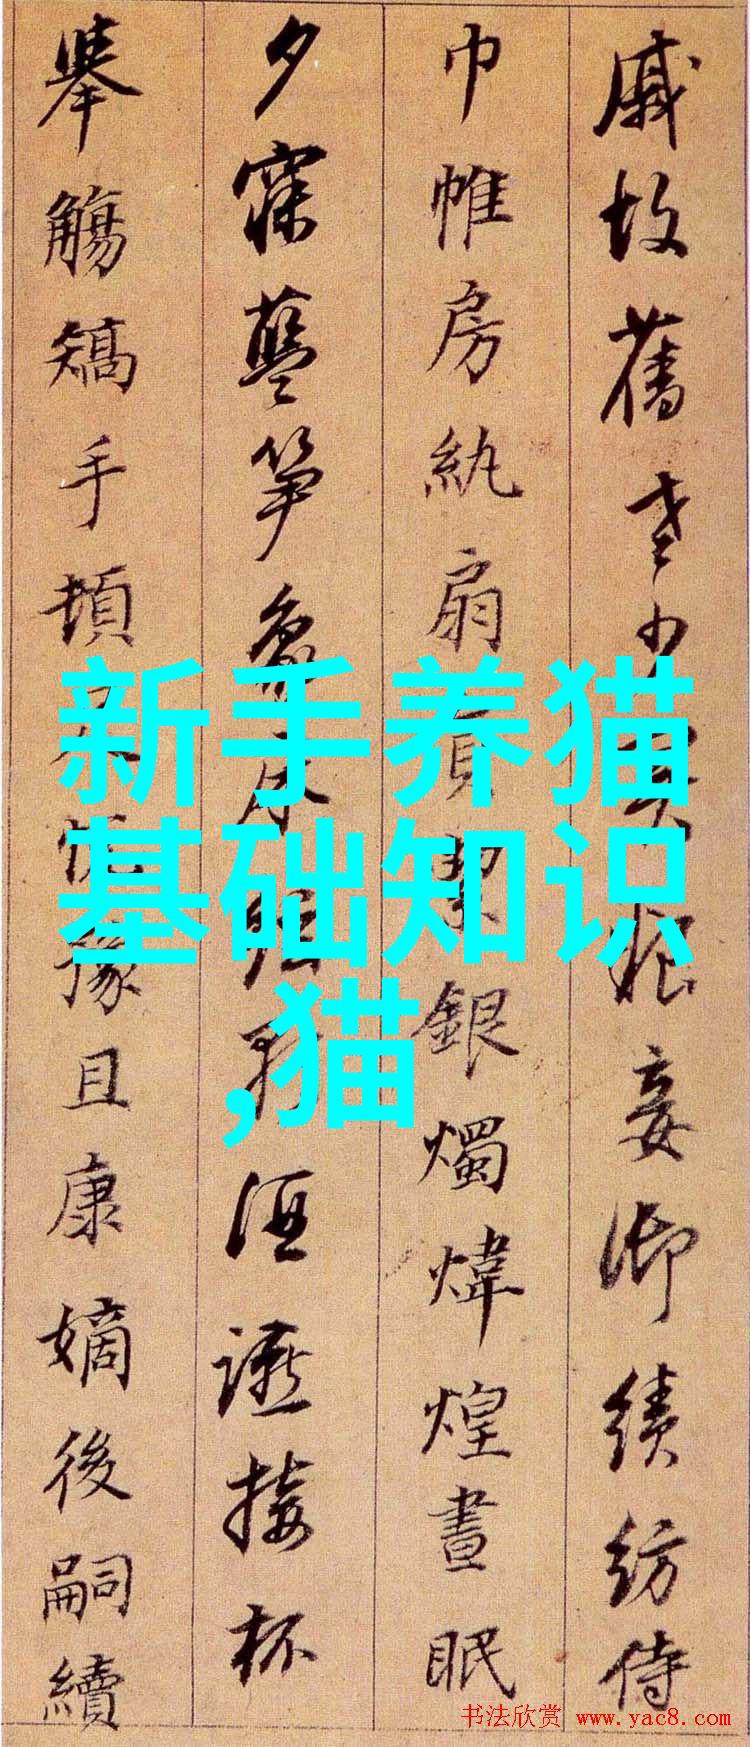 戚故舊老少異粮妾御績紡侍
巾帷房紈扇員潔銀燭煒煌晝眠
夕寐藍笋象床弦歌酒讌接杯
舉觴矯手頓足悅豫且康嫡後嗣續
新手养猫
基础知识
,猫
书法欣赏 www.yac8.com